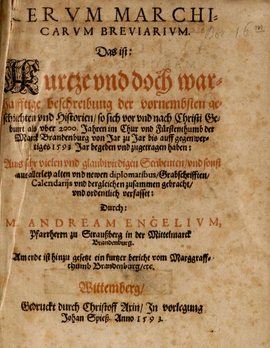 RERVM MARCHI-
CARVM BREVIARIVM.
Das ist:
Kurtze vnd doch war-
hafftige beschreibung der vornembsten ge-
schichten vnd Historien/ so sich vor vnd nach Christi Ge-
burt als vber 2000. Jahren im Chur vnd Fürstenthumb der
Marck Brandenburg von Jar zu Jar bis auff gegenwer-
tiges 1593 Jar begeben vnd zugetragen haben:
Aus sehr vielen vnd glaubwirdigen Scribenten/ vnd sonst
aus allerley alten vnd newen diplomatibus/ Grabschrifften,
Calendarijs vnd dergleichen zusammen gebracht/
vnd ordentlich verfasset:
Durch:
M. ANDREAM ENGELIVM,
Pfarrherrn zu Straußberg in der Mittelmarck
Brandenburg.
Am ende ist hinzu gesetzt ein kurtzer bericht vom Marggraff-
thumb Brandenburg/ etc.
Wittemberg/
Gedruckt durch Christoff Axin/ In vorlegung
Johan Spieß. Anno 1593.